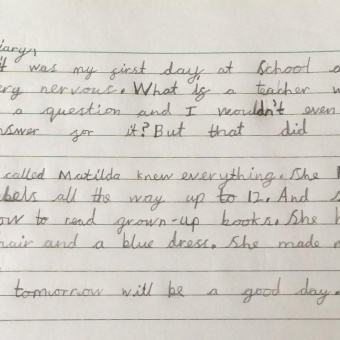 iary,
it was my first day at School a
ery nervous. What is a teacher w
a question and I wouldn't even
nswer for it? But that did
called Matilda knew everything. She
bels all the way up to 12. And s
ow to read grown-up books. She h
hair and a blue dress. She made m
tomorrow will be a good day.